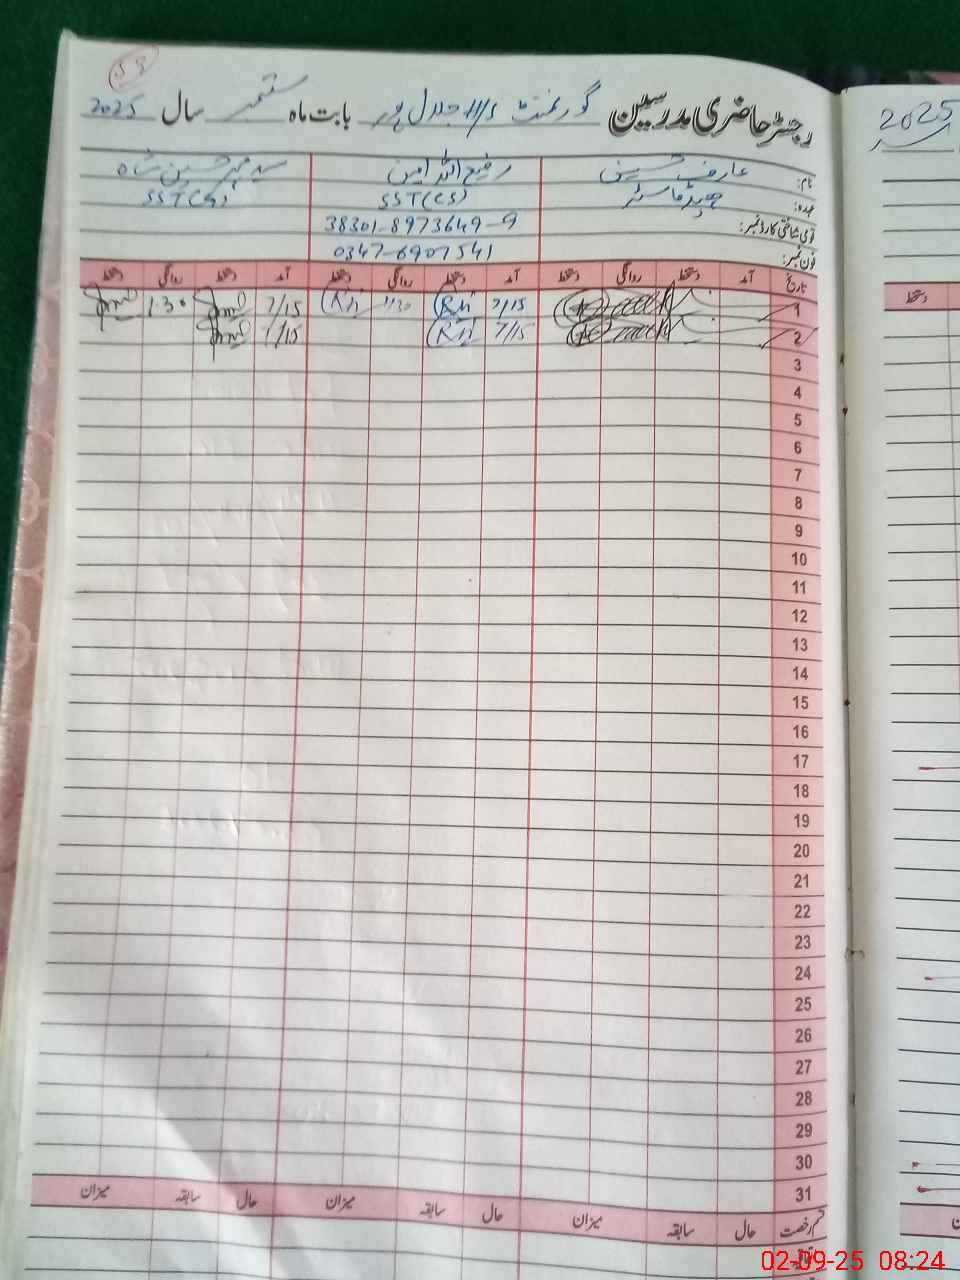 59
رجسٹر حاضری مدرسین گورنمنٹ H/S جلال پور بابت ماہ ستمبر سال 2025
2025
نام: عارف حسین رفیع اللہ امین سید محمد حسین شاہ
عہدہ: ھیڈ ماسٹر SST(CS) SST(G)
قومی شناختی کارڈ نمبر: 38301-8973649-9
فون نمبر: 0347-6907541
تاریخ آمد دستخط روانگی دستخط آمد دستخط روانگی دستخط آمد دستخط روانگی دستخط
دستخط
1 7/15 1/30 7/15 1.30
2 7/15 7/15
3
4
5
6
7
8
9
10
11
12
13
14
15
16
17
18
19
20
21
22
23
24
25
26
27
28
29
30
31
قسم رخصت حال سابقہ میزان حال سابقہ میزان حال سابقہ میزان
02-09-25 08:24